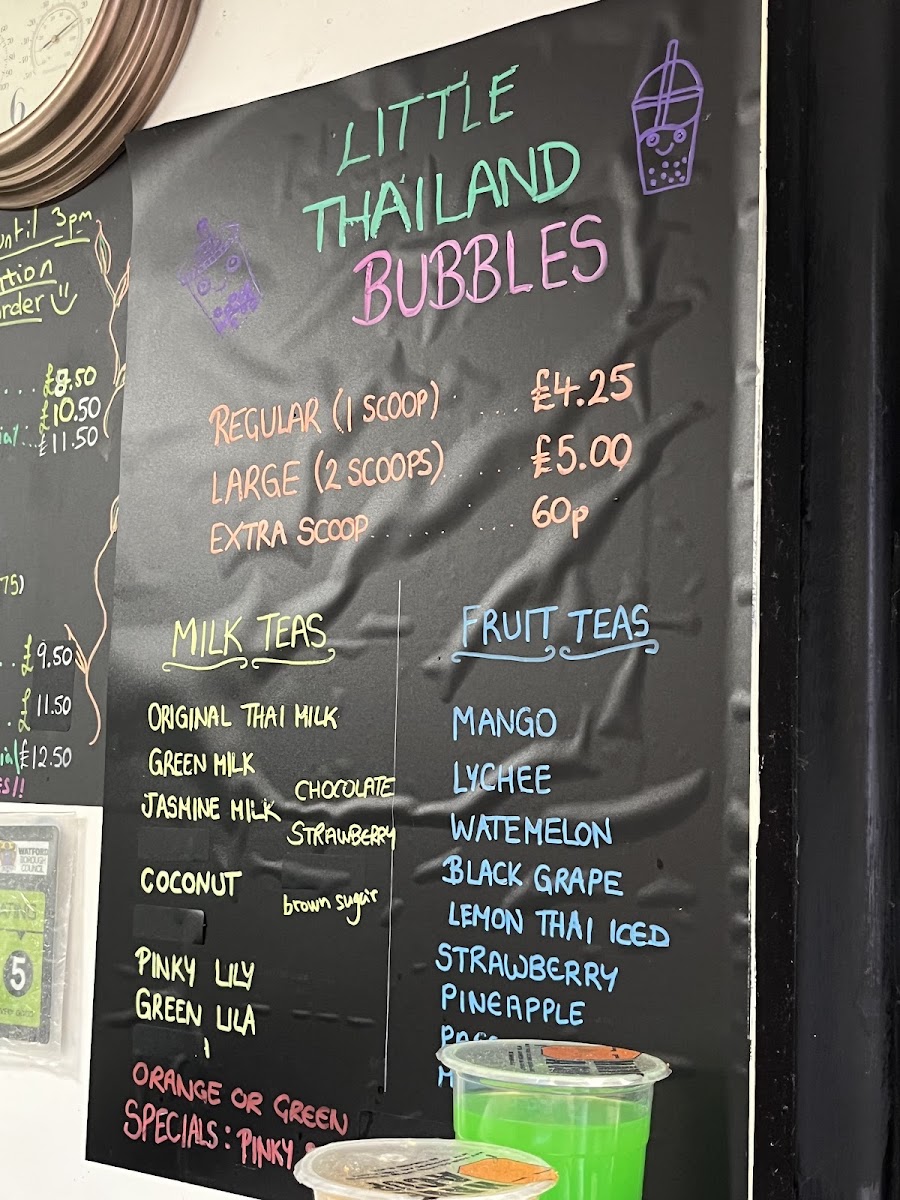 6
until 3pm
LITTLE
THAILAND
BUBBLES
£8.50
£10.50
£11.50
£9.50
£11.50
£12.50
REGULAR (1 SCOOP) ..... £4.25
LARGE (2 SCOOPS) ..... £5.00
EXTRA SCOOP ........ 60p
MILK TEAS
ORIGINAL THAI MILK
GREEN MILK
CHOCOLATE
JASMINE MILK
STRAWBERRY
COCONUT
brown sugar
PINKY LILY
GREEN LILA
ORANGE OR GREEN
SPECIALS: PINKY
FRUIT TEAS
MANGO
LYCHEE
WATEMELON
BLACK GRAPE
LEMON THAI ICED
STRAWBERRY
PINEAPPLE
WATFORD
BOROUGH
COUNCIL
5